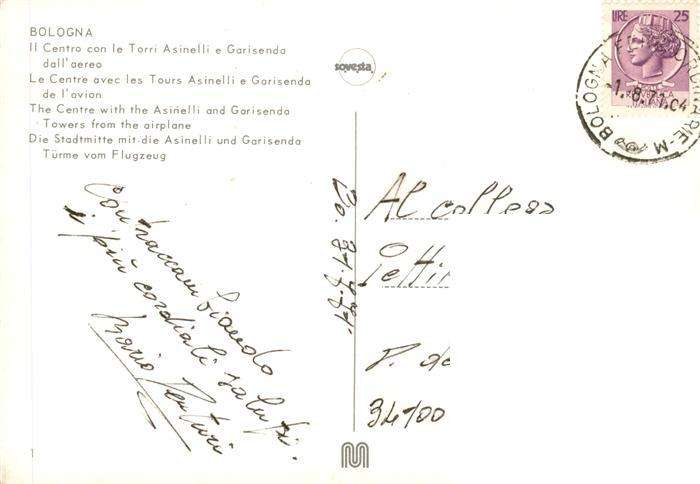 BOLOGNA
Il Centro con le Torri Asinelli e Garisenda
dall'aereo
Le Centre avec les Tours Asinelli e Garisenda
de l'avion
The Centre with the Asinelli and Garisenda
Towers from the airplane
Die Stadtmitte mit die Asinelli und Garisenda
Türme vom Flugzeug
sovesta
LIRE 25
BOLOGNA
Contraccambiando
i più cordiali saluti.
Mario Venturi
Bo.
Al collega
P. de
34100
1